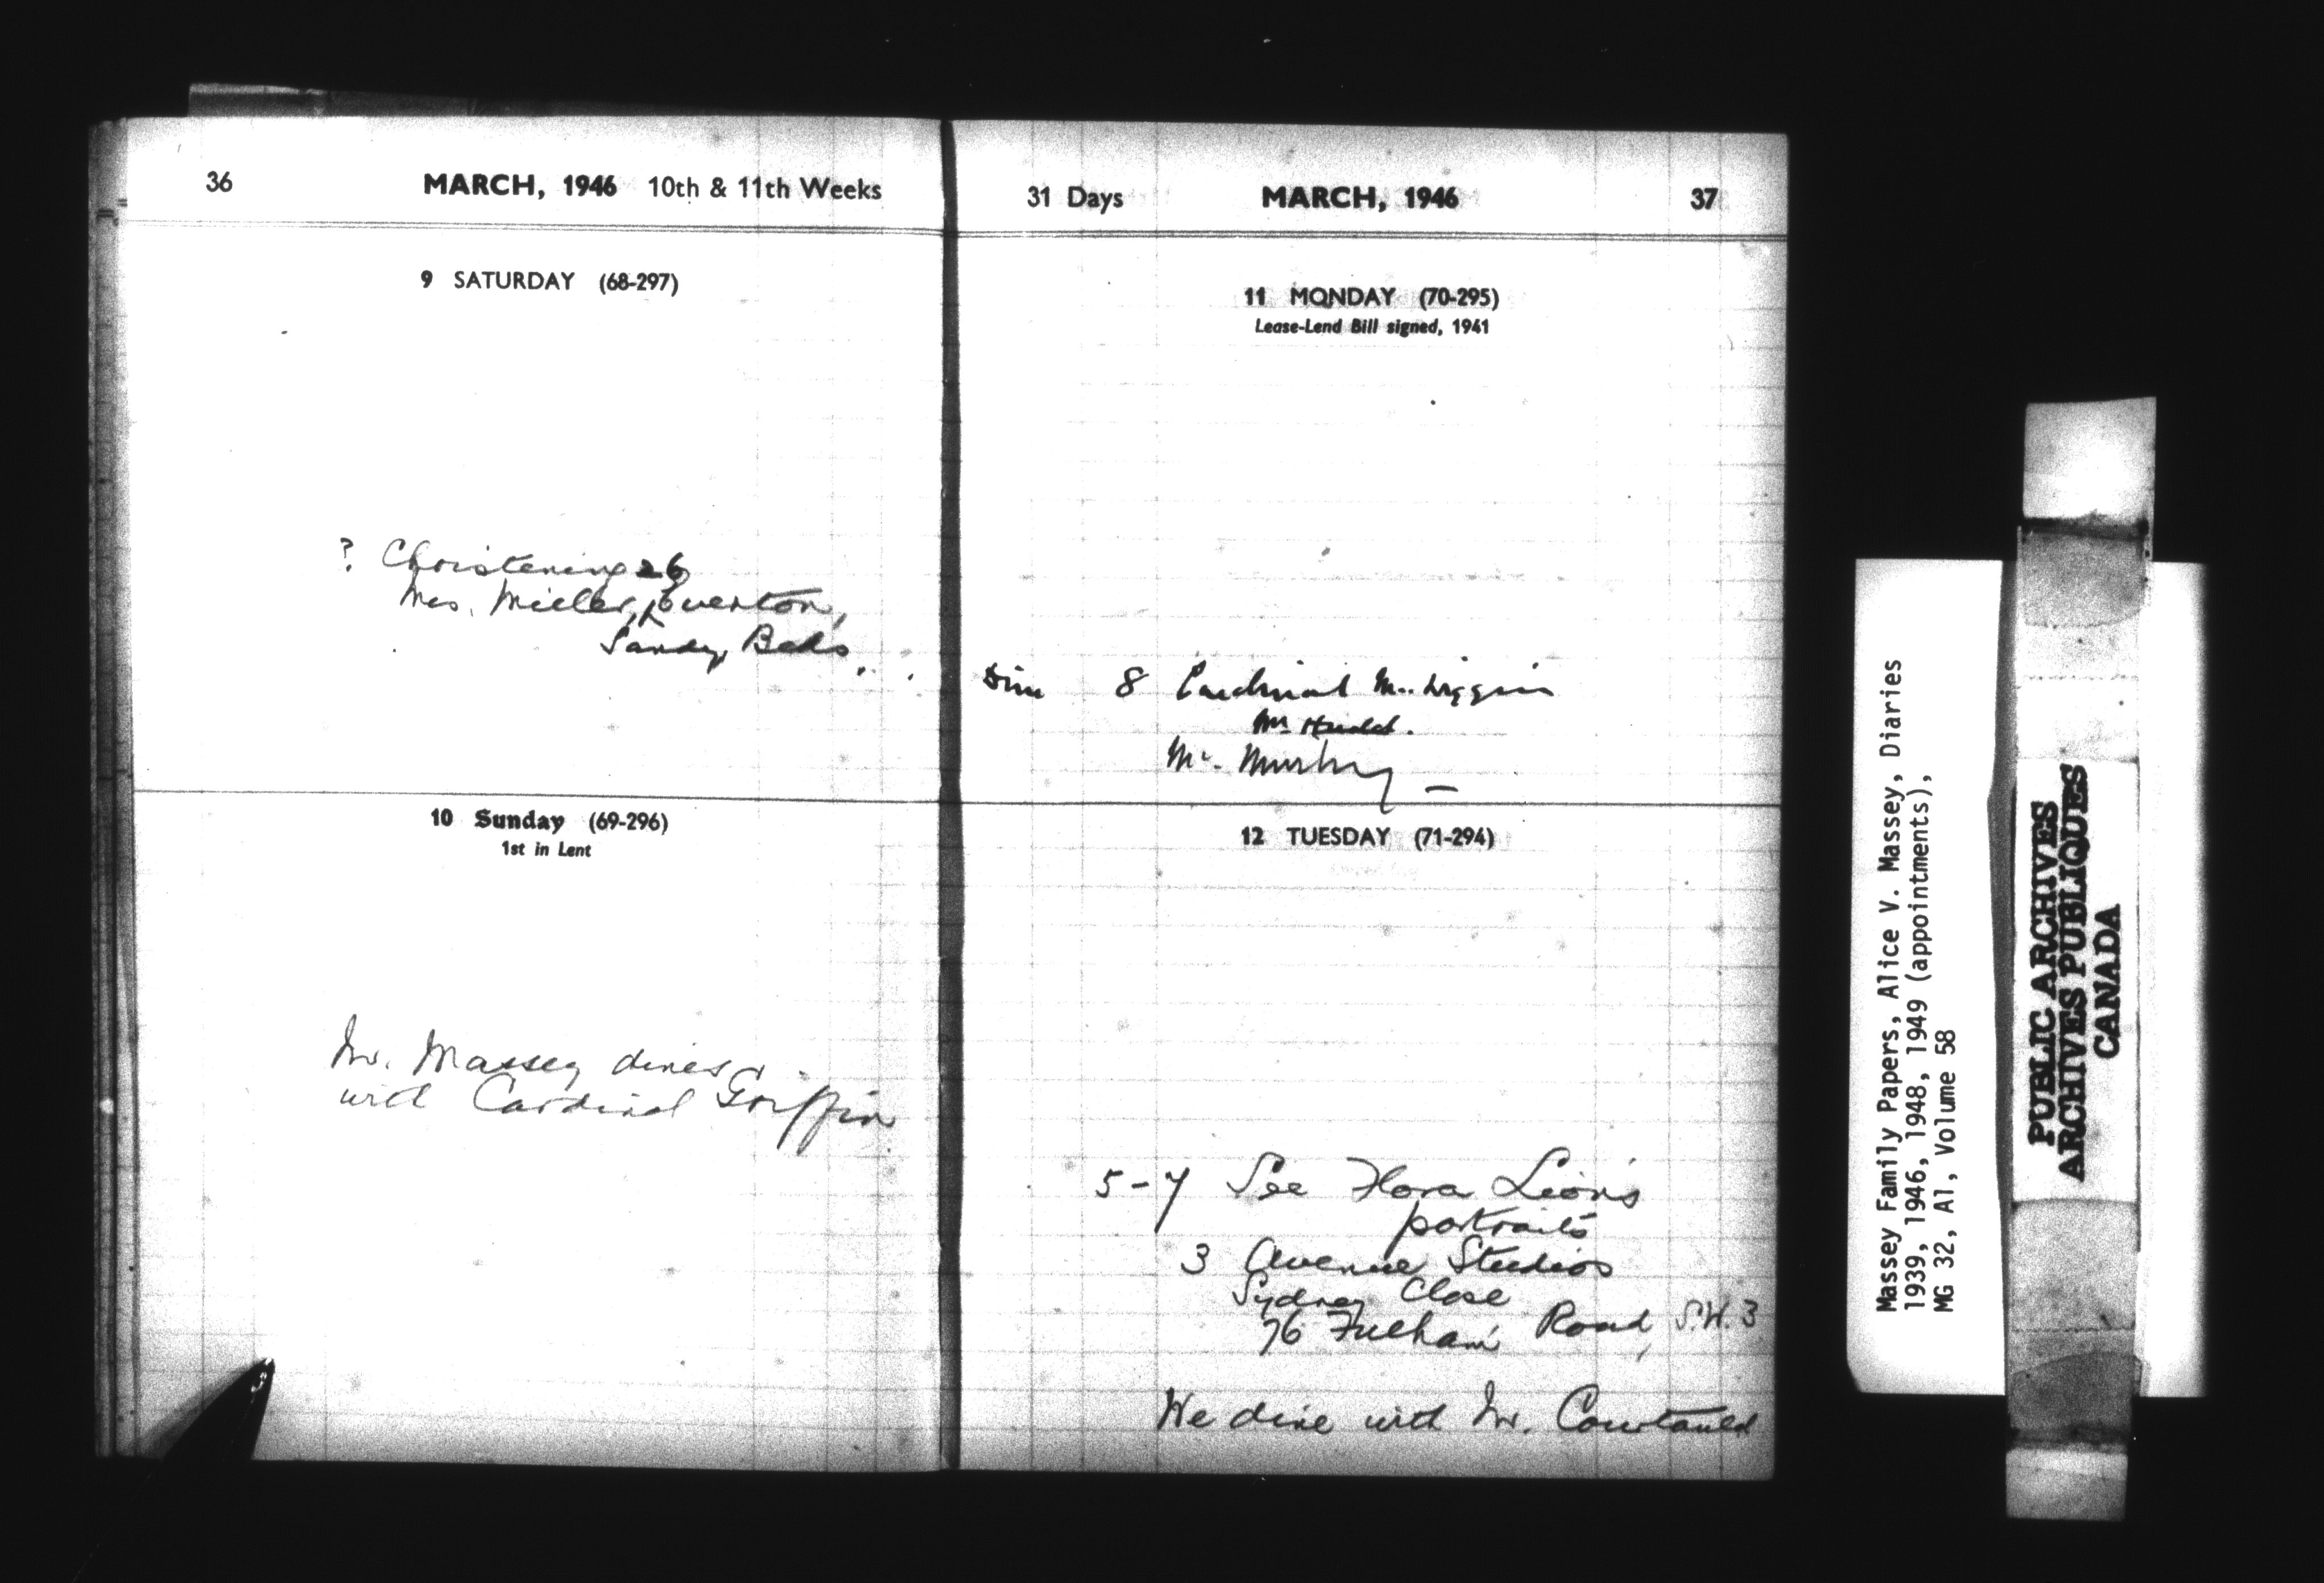 36 MARCH, 1946 10th & 11th Weeks
9 SATURDAY (68-297)
? Christening 26
Mrs. Miller, Everton,
Sandy, Beds.
10 Sunday (69-296)
1st in Lent
Mr. Massey dines
with Cardinal Griffin
31 Days MARCH, 1946 37
11 MONDAY (70-295)
Lease-Lend Bill signed, 1941
Din 8 Cardinal
Mr.
Mr. Murphy —
12 TUESDAY (71-294)
5-7 See Flora Lion's
portraits
3 Avenue Studios
Sydney Close
76 Fulham Road, S.W. 3
We dine with Mr. Courtauld
Massey Family Papers, Alice V. Massey, Diaries
1939, 1946, 1948, 1949 (appointments),
MG 32, A1, Volume 58
PUBLIC ARCHIVES
ARCHIVES PUBLIQUES
CANADA